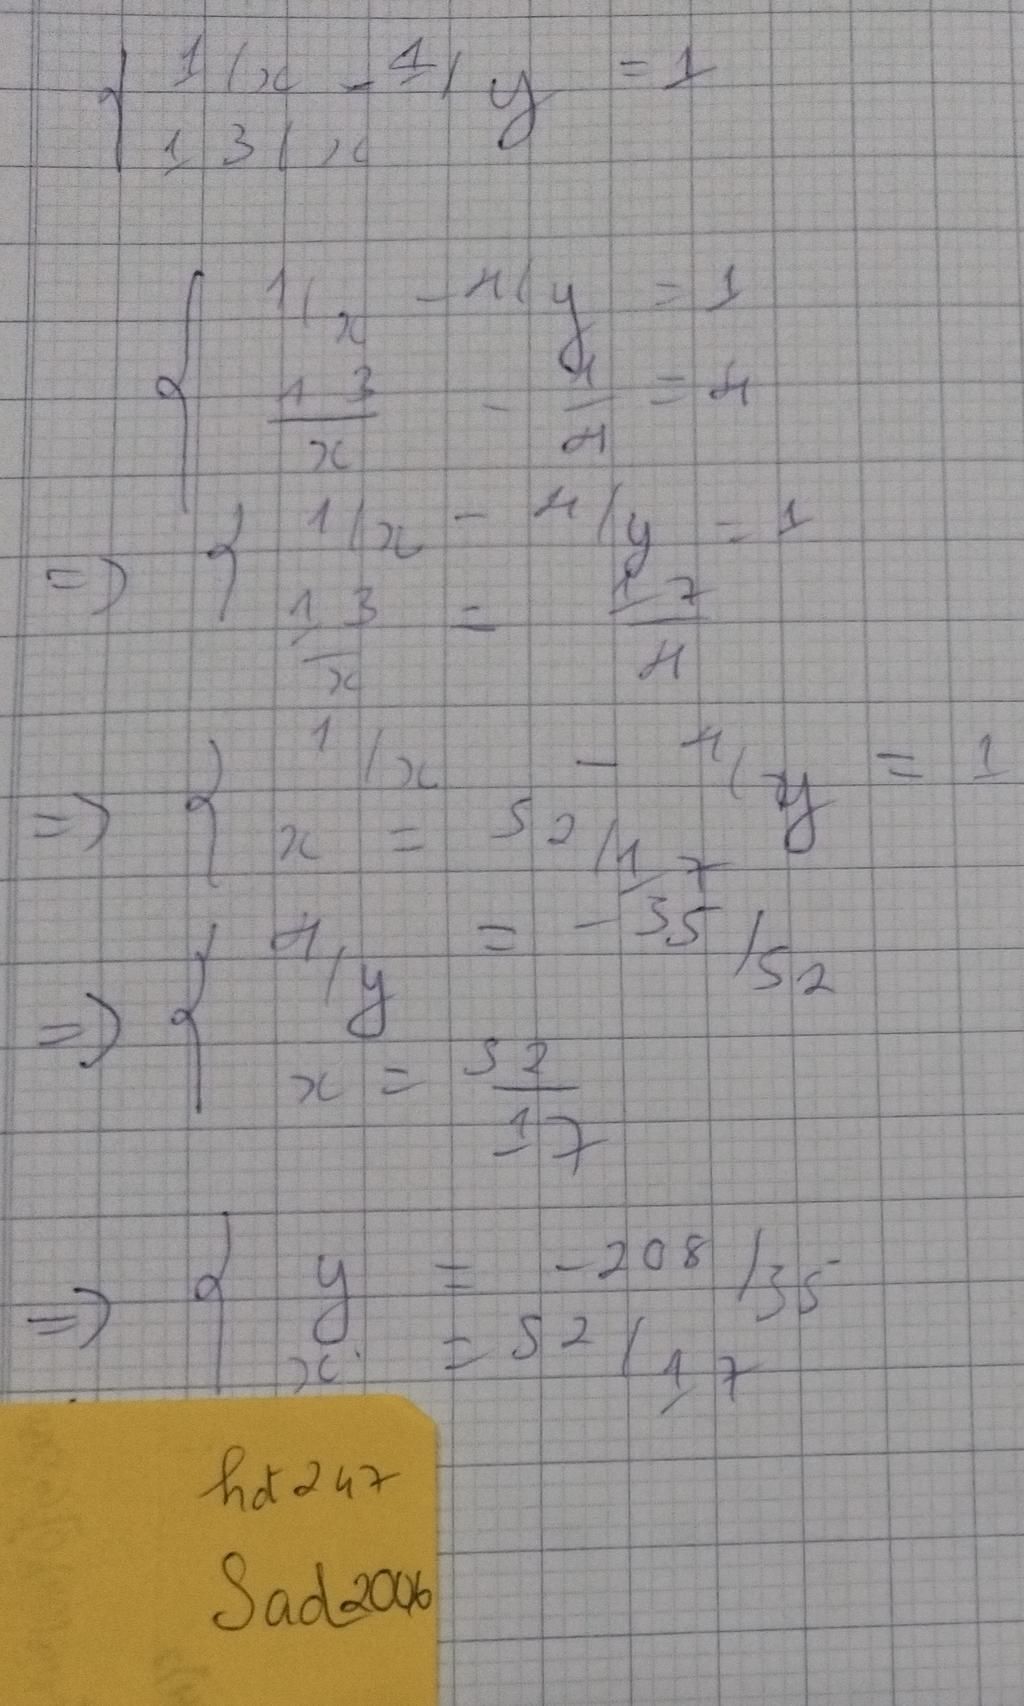 { 1/x - 4/y = 1
13/x
{ 1/x - 4/y = 1
13/x - 4/4 = 4
=> { 1/x - 4/y = 1
13/x = 17/4
=> { 1/x - 4/y = 1
x = 52/17
=> { 4/y = -35/52
x = 52/17
=> { y = -208/35
x = 52/17
hd247
Sad2006